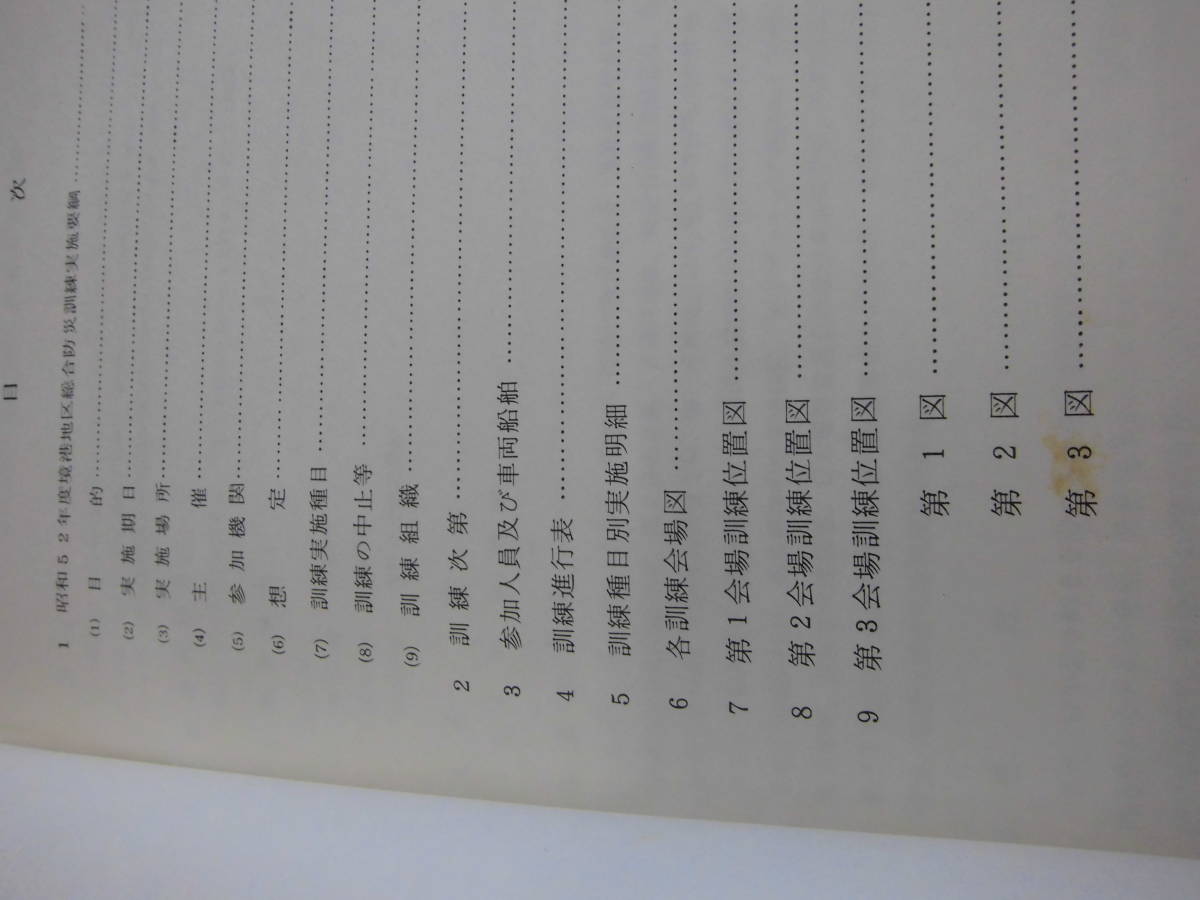 目次
1 昭和52年度境港地区総合防災訓練実施要綱
(1) 目的
(2) 実施期日
(3) 実施場所
(4) 主催
(5) 参加機関
(6) 想定
(7) 訓練実施種目
(8) 訓練の中止等
(9) 訓練組織
2 訓練次第
3 参加人員及び車両船舶
4 訓練進行表
5 訓練種目別実施明細
6 各訓練会場図
7 第1会場訓練位置図
8 第2会場訓練位置図
9 第3会場訓練位置図
第1図
第2図
第3図